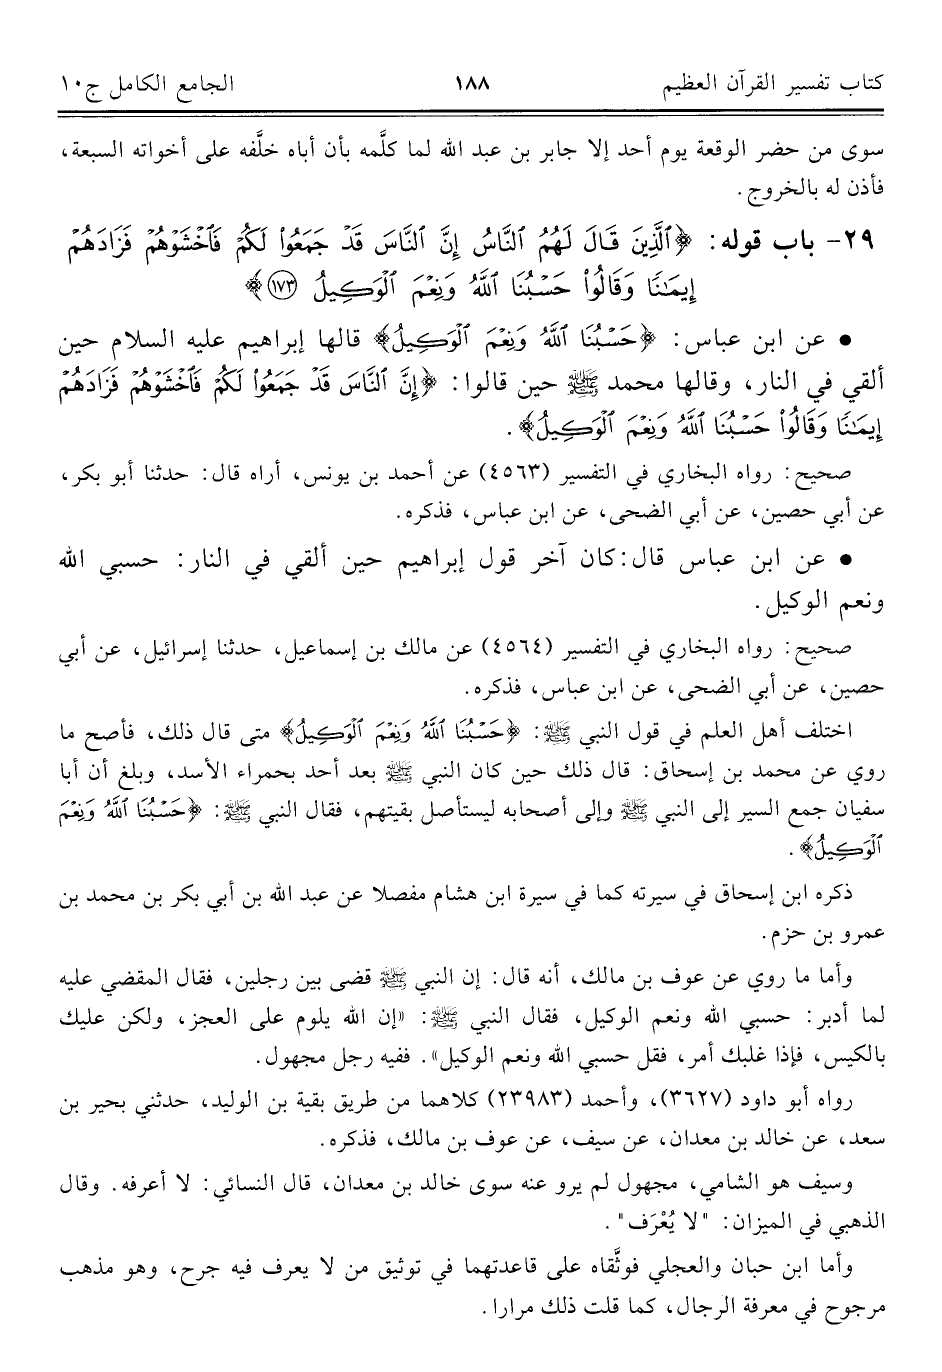 كتاب تفسير القرآن العظيم ١٨٨ الجامع الكامل ج١٠
سوى من حضر الوقعة يوم أحد إلا جابر بن عبد الله لما كلَّمه بأن أباه خلَّفه على أخواته السبعة،
فأذن له بالخروج.
٢٩- باب قوله: ﴿ٱلَّذِينَ قَالَ لَهُمُ ٱلنَّاسُ إِنَّ ٱلنَّاسَ قَدْ جَمَعُوا۟ لَكُمْ فَٱخْشَوْهُمْ فَزَادَهُمْ
إِيمَـٰنًا وَقَالُوا۟ حَسْبُنَا ٱللَّهُ وَنِعْمَ ٱلْوَكِيلُ ١٧٣﴾
• عن ابن عباس: ﴿حَسْبُنَا ٱللَّهُ وَنِعْمَ ٱلْوَكِيلُ﴾ قالها إبراهيم عليه السلام حين
ألقي في النار، وقالها محمد ﷺ حين قالوا: ﴿إِنَّ ٱلنَّاسَ قَدْ جَمَعُوا۟ لَكُمْ فَٱخْشَوْهُمْ فَزَادَهُمْ
إِيمَـٰنًا وَقَالُوا۟ حَسْبُنَا ٱللَّهُ وَنِعْمَ ٱلْوَكِيلُ﴾.
صحيح: رواه البخاري في التفسير (٤٥٦٣) عن أحمد بن يونس، أراه قال: حدثنا أبو بكر،
عن أبي حصين، عن أبي الضحى، عن ابن عباس، فذكره.
• عن ابن عباس قال: كان آخر قول إبراهيم حين ألقي في النار: حسبي الله
ونعم الوكيل.
صحيح: رواه البخاري في التفسير (٤٥٦٤) عن مالك بن إسماعيل، حدثنا إسرائيل، عن أبي
حصين، عن أبي الضحى، عن ابن عباس، فذكره.
اختلف أهل العلم في قول النبي ﷺ: ﴿حَسْبُنَا ٱللَّهُ وَنِعْمَ ٱلْوَكِيلُ﴾ متى قال ذلك، فأصح ما
روي عن محمد بن إسحاق: قال ذلك حين كان النبي ﷺ بعد أحد بحمراء الأسد، وبلغ أن أبا
سفيان جمع السير إلى النبي ﷺ وإلى أصحابه ليستأصل بقيتهم، فقال النبي ﷺ: ﴿حَسْبُنَا ٱللَّهُ وَنِعْمَ
ٱلْوَكِيلُ﴾.
ذكره ابن إسحاق في سيرته كما في سيرة ابن هشام مفصلا عن عبد الله بن أبي بكر بن محمد بن
عمرو بن حزم.
وأما ما روي عن عوف بن مالك، أنه قال: إن النبي ﷺ قضى بين رجلين، فقال المقضي عليه
لما أدبر: حسبي الله ونعم الوكيل، فقال النبي ﷺ: «إن الله يلوم على العجز، ولكن عليك
بالكيس، فإذا غلبك أمر، فقل حسبي الله ونعم الوكيل». ففيه رجل مجهول.
رواه أبو داود (٣٦٢٧)، وأحمد (٢٣٩٨٣) كلاهما من طريق بقية بن الوليد، حدثني بحير بن
سعد، عن خالد بن معدان، عن سيف، عن عوف بن مالك، فذكره.
وسيف هو الشامي، مجهول لم يرو عنه سوى خالد بن معدان، قال النسائي: لا أعرفه. وقال
الذهبي في الميزان: "لا يُعْرَف".
وأما ابن حبان والعجلي فوثَّقاه على قاعدتهما في توثيق من لا يعرف فيه جرح، وهو مذهب
مرجوح في معرفة الرجال، كما قلت ذلك مرارا.